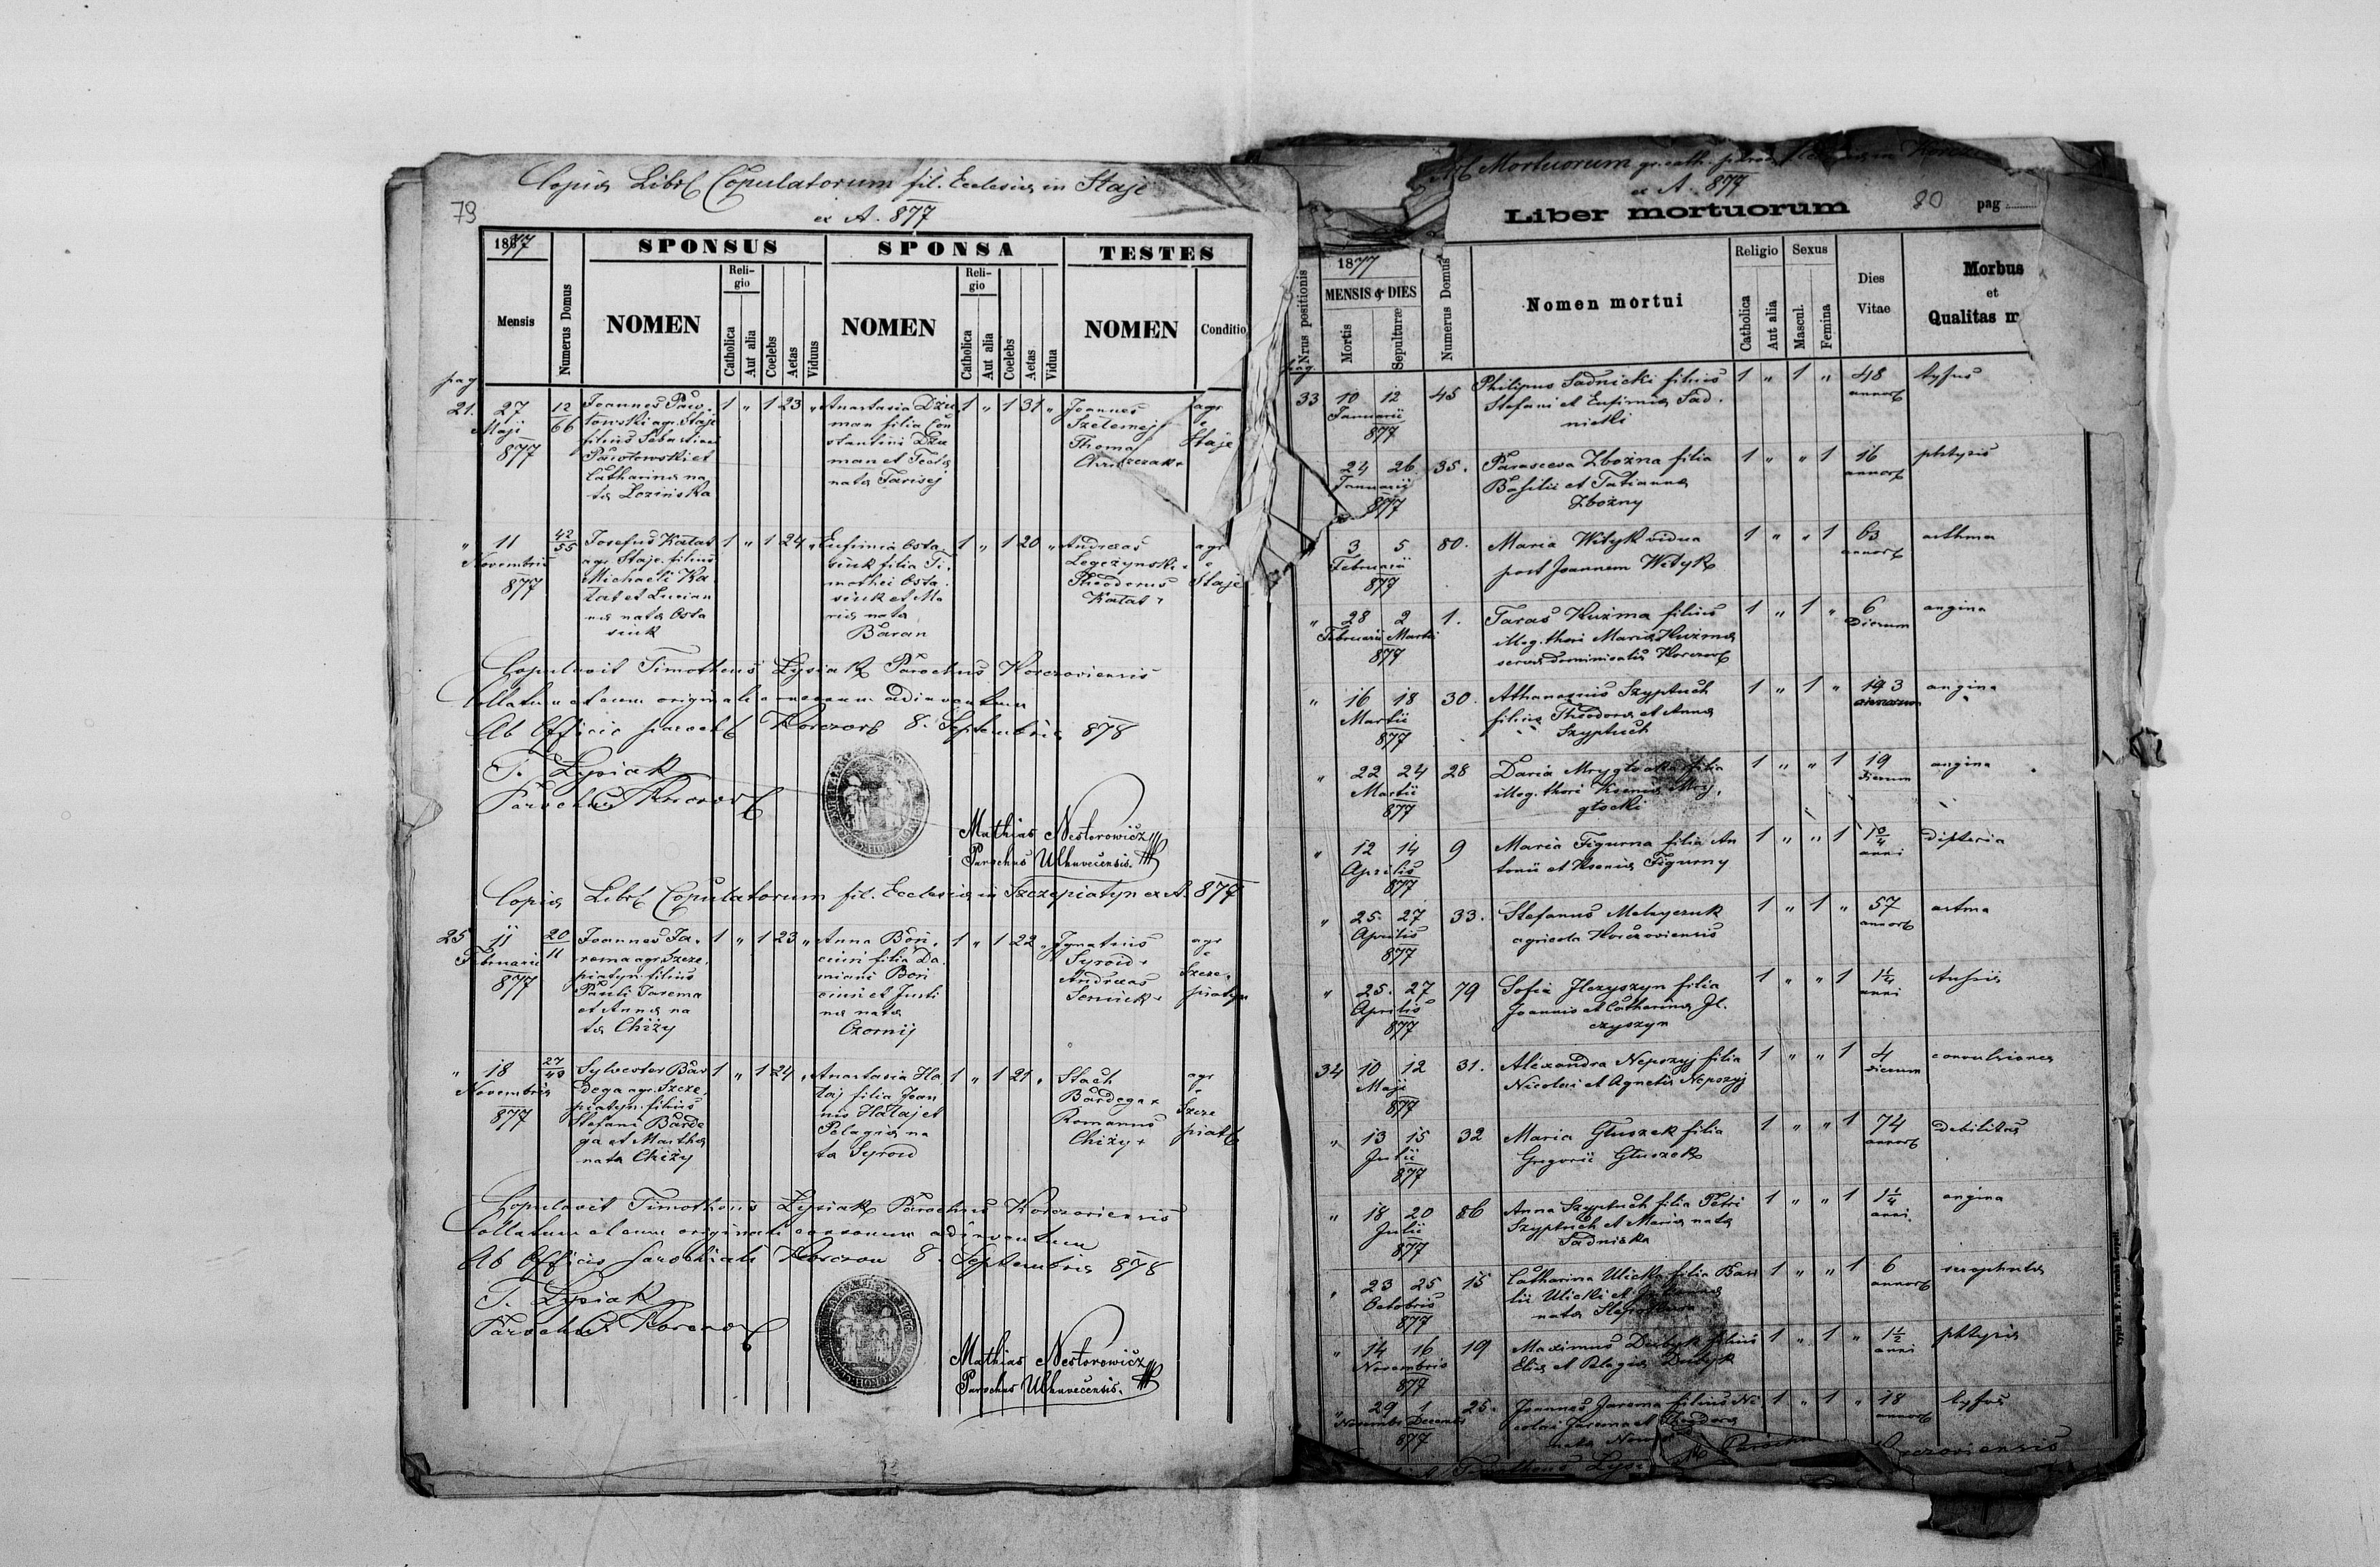 Copia Libri Copulatorum fil. Ecclesia in Staje
79
ex A. 877
1877
SPONSUS
SPONSA
TESTES
Mensis
Numerus Domus
NOMEN
Religio
Catholica
Aut alia
Coelebs
Aetas
Viduus
NOMEN
Religio
Catholica
Aut alia
Coelebs
Aetas
Vidua
NOMEN
Conditio
pag
21.
27
Maji
877
12
66
Joannes Paw
filius
Pawłowski et
Catharina na
ta Lozińska
1 " 1 23 "
Anastasia Dzu
man filia Con
stantini Dzu
man et
nata Tarisej
1 " 1 31 "
Joannes
Szelemej
Thoma
agr
Staje
"
11
Novembris
877
42
55
Josefus Kałat
agr. Staje. filius
Michaeli Ka
łat et Lucian
na nata Osta
siuk
1 " 1 24 "
Eufimia Osta
siuk filia Ti
mothei Osta
siuk et Ma
ria nata
Baran
1 " 1 20 "
Andreas
Legczynski
Theodorus
Kałat
agr
Staje
Copulavit Timotheus Łysiak Parochus Korczoviensis
Collatum et cum originali consonum adinventum
Ab Officio paroch Korczow 8. Septembris 878
T. Łysiak
Parochus Korczow
Mathias Nestorowicz
Parochus Uhnuvecensis.
Copia Libri Copulatorum fil. Ecclesia in Szczepiatyn ex A. 877
25
11
Februarii
877
20
11
Joannes Ja
rema agr. Szcze
piatyn. filius
Pauli Jarema
et Anna na
ta Chiży
1 " 1 23 "
Anna Boń
ciuń filia Da
miani Boń
ciuń et Justi
na nata
Czornij
1 " 1 22 "
Ignatius
Syroid
Andreas
Semick
agr
Szcze
piatyn
"
18
Novembris
877
27
40
Sylvester Bar
dega agr. Szcze
piatyn. filius
Stefani Barde
ga et Martha
nata Chiży
1 " 1 24 "
Anastasia Ha
łaj filia Joan
nis Hałaj et
Pelagia na
ta Syroid
1 " 1 21 "
Stach
Bardega
Romanus
Chiży
agr
Szcze
piat
Copulavit Timotheus Łysiak Parochus Korczoviensis
Collatum et cum originali consonum adinventum
Ab Officio parochiali Korczow 8. Septembris 878
T. Łysiak
Parochus Korczow
Mathias Nestorowicz
Parochus Uhnuvecensis.
Mortuorum gr. cath.
ex A. 877
Liber mortuorum
80
pag
Nrus positionis
1877
MENSIS & DIES
Mortis
Sepulturæ
Numerus Domus
Nomen mortui
Religio
Catholica
Aut alia
Sexus
Mascul.
Femina
Dies
Vitae
Morbus
et
Qualitas m
pag
33
10 12
Januarii
877
45
Philipus Sadnicki filius
Stefani et Eufimia Sad
nicki
1 " 1 "
48
annor
tyfus
24 26
Januarii
877
35.
Parasceva Zbożna filia
Basilii et Tatianna
Zbożny
1 " " 1
16
annor
phtysis
3 5
Februarii
877
80.
Maria Wityk vidua
post Joannem Wityk
1 " " 1
63
annor
asthma
"
28 2
Februarii Martii
877
1.
Taras Kuźma filius
illeg. thori Maria Kuźma
serva dominicalis Korczow
1 " 1 "
6
dierum
angina
"
16 18
Martii
877
30.
Athanasius Szyptuch
filius Theodora et Anna
Szyptuch
1 " 1 "
193
dierum
angina
"
22 24
Martii
877
28
Daria Mrygłocka filia
illeg. thori Ksenia Mry
głocki
1 " " 1
19
dierum
angina
"
12 14
Aprilis
877
9
Maria Figurna filia An
tonii et Ksenia Figurny
1 " " 1
anni
difteria
"
25. 27
Aprilis
877
33.
Stefanus Melnyczuk
agricola Korczoviensis
1 " 1 "
57
annor
astma
"
25. 27
Aprilis
877
79
Sofia Ilczyszyn filia
Joannis et Catharina Il
czyszyn
1 " " 1
1 1/4
anni
tussis
34
10 12
Maji
877
31.
Alexandra Nepszyj filia
Nicolai et Agnetis Nepszyj
1 " " 1
4
dierum
convulsiones
"
13 15
Julii
877
32
Maria Głuszek filia
Gregorii Głuszek
1 " " 1
74
annor
debilitas
"
18 20
Julii
877
86
Anna Szyptuch filia Petri
Szyptuch et Maria nata
Sadnicka
1 " " 1
1 1/4
anni
angina
"
23 25
Octobris
877
15
Catharina Ulicka filia Basi
lii Ulicki et
nata
1 " " 1
6
annor
scrophula
"
14 16
Novembris
877
19
Maximus Dubyk filius
Elia et Pelagia Dubyk
1 " 1 "
1 1/2
anni
phtysis
"
29 1
Novembr Decembris
877
25.
Joannes Jarema filius Ni
colai Jarema et Theodora
nata
1 " 1 "
18
annor
tyfus